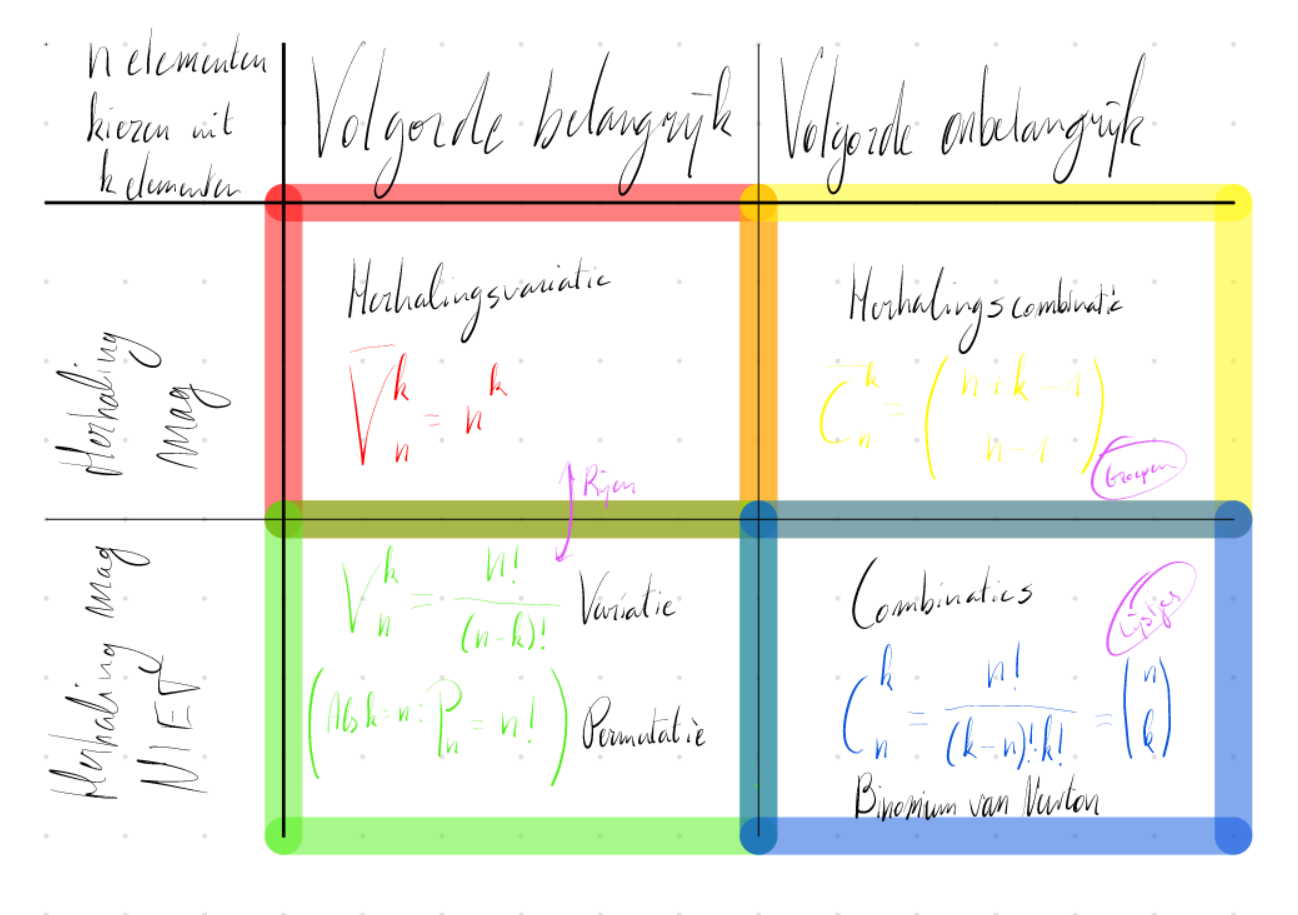 n elementen
kiezen uit
k elementen
Volgorde belangrijk
Volgorde onbelangrijk
Herhaling
mag
Herhalingsvariatie
V̅ₙᵏ = nᵏ
Rijen
Herhalingscombinatie
C̅ₙᵏ = (n+k-1
n-1)
Groepen
Herhaling mag
NIET
Vₙᵏ = n!/(n-k)! Variatie
(Als k=n: Pₙ = n!) Permutatie
Combinaties
Lijstjes
Cₙᵏ = n!/(k-n)!·k! = (n
k)
Binomium van Newton